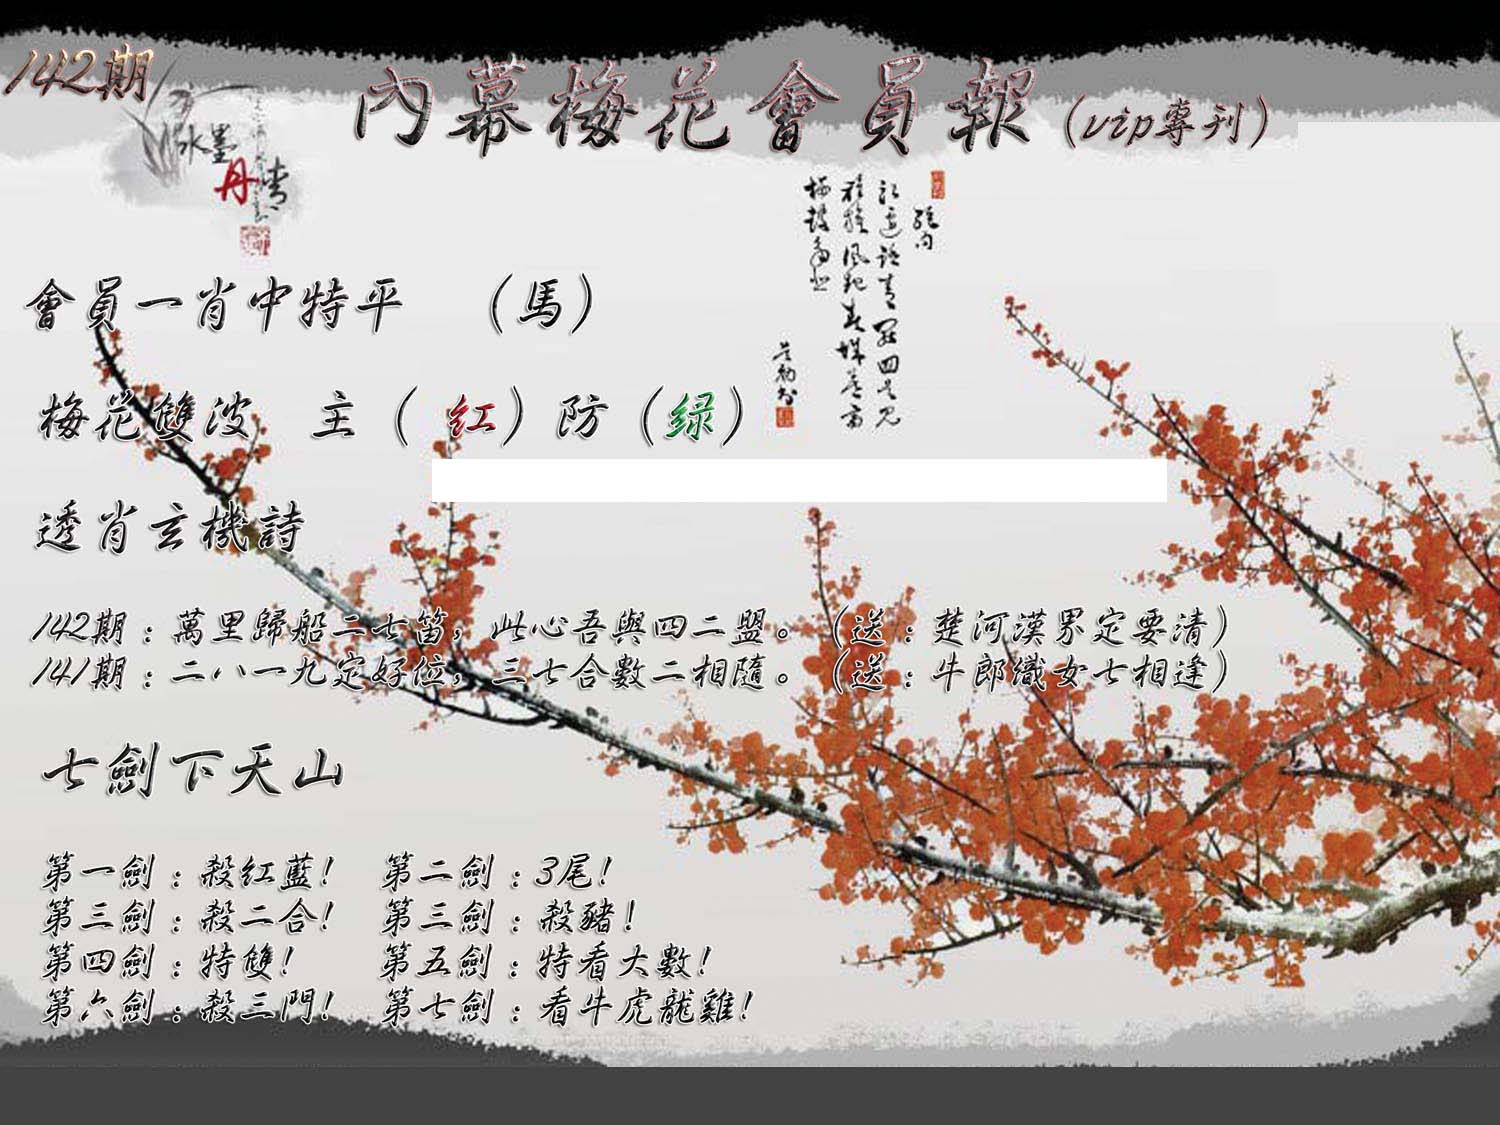 142期
內幕梅花會員報(vip專刊)
水墨
丹青
會員一肖中特平 (馬)
梅花雙波 主(紅)防(绿)
透肖玄機詩
142期:萬里歸船二七笛,此心吾與四二盟。(送:楚河漢界定要清)
141期:二八一九定好位,三七合數二相隨。(送:牛郎織女七相逢)
七劍下天山
第一劍:殺紅藍! 第二劍:3尾!
第三劍:殺二合! 第三劍:殺豬!
第四劍:特雙! 第五劍:特看大數!
第六劍:殺三門! 第七劍:看牛虎龍雞!